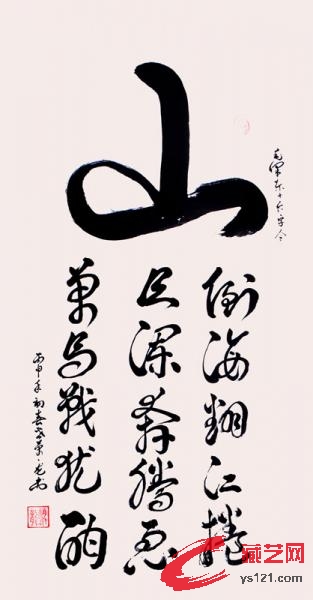 山
毛泽东十六字令
倒海翻江捲
巨澜奔腾急
万马战犹酣
藏艺网
ys121.com